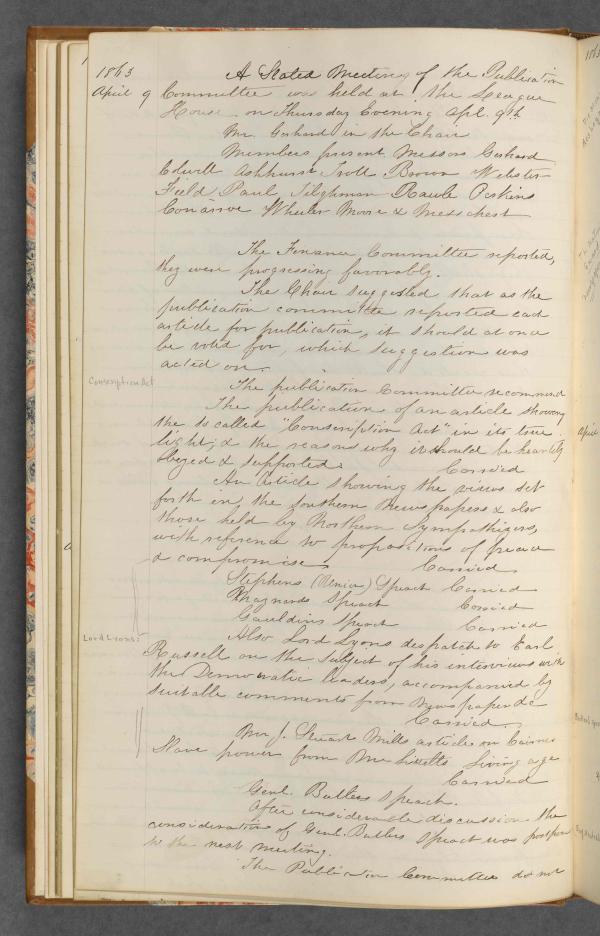 1863
April 9
A Stated Meeting of the Publication
Committee was held at the League
House on Thursday Evening Apl. 9th
Mr. Gerhard in the Chair
Members present Messrs Gerhard
Ashhurst Trott Brown Webster
Field Paul Tilghman Rawle Perkins
Conarroe Wheeler Moore & Messchert
The Finance Committee reported,
they were progressing favorably.
The Chair suggested that as the
publication committee reported each
article for publication, it should at once
be voted for, which suggestion was
acted on.
Conscription Act
The publication Committee recommend
The publication of an article showing
the so called "Conscription Act" in its true
light, & the reasons why it should be heartily
obeyed & supported. Carried
An Article showing the views set
forth in the Southern Newspapers & also
those held by Northern Sympathizers,
with reference to propositions of peace
& compromise Carried
Stephens Speech Carried
Maynards Speech Carried
Gauldins Speech Carried
Lord Lyons
Also Lord Lyons despatch to Earl
Russell on the subject of his interviews with
the Democratic leaders, accompanied by
suitable comments from Newspapers &c
Carried.
Mr J. Stuart Mills article on Cairnes
Slave power from Littells Living age
Carried
Genl. Butlers Speech.
After considerable discussion the
consideration of Genl. Butlers Speech was postpon
to the next meeting.
The Publication Committee do not
April